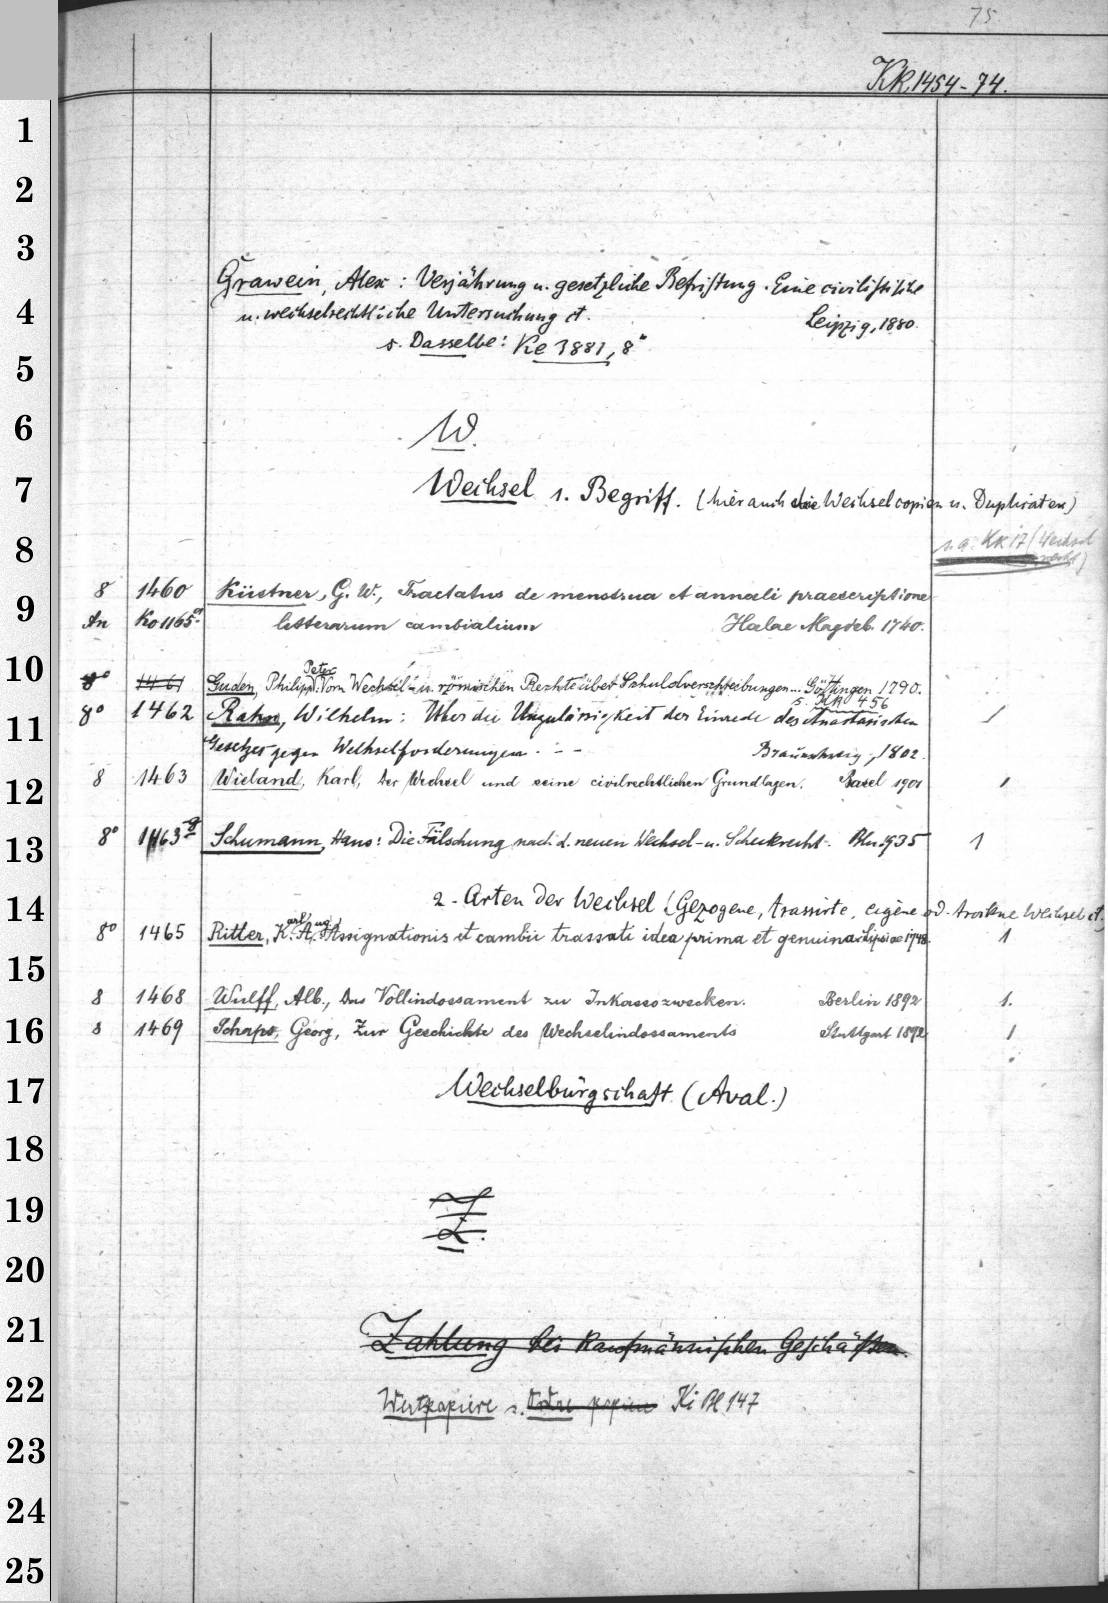 75
KK 1454-74.
1
2
3
Grawein, Alex : Verjährung u. gesetzliche Befristung. Eine civilistische
4
u. wechselrechtliche Untersuchung ct. Leipzig, 1880.
s. Dasselbe: Ke 3881, 8°
5
6
W.
7
Wechsel 1. Begriff. (hier auch die Wechselcopien u. Duplicaten)
8
s. a. KK 17 (Wechsel
9
8 1460 Küstner, G. W., Tractatus de menstrua et annali praescriptione
An Ko 1165 litterarum cambialium Halae Magdeb. 1740.
10
8° 1461 Guden, Philipp Peter: Vom Wechsel- u. römischen Rechte über Schuldverschreibungen... Göttingen 1790.
s. KK 456
11
8° 1462 Rahn, Wilhelm: Über die Unzulässigkeit der Einrede des Anastasischen 1
Gesetzes gegen Wechselforderungen - - - Braunschweig, 1802.
12
8 1463 Wieland, Karl, Der Wechsel und seine civilrechtlichen Grundlagen. Basel 1901 1
13
8° 1463 g Schumann, Hans: Die Fälschung nach d. neuen Wechsel- u. Scheckrecht. Bln. 1935 1
14
2. Arten der Wechsel (Gezogene, trassirte, eigene od. trockne Wechsel ct.)
8° 1465 Ritter, Karl Aug. Assignationis et cambii trassati idea prima et genuina. Lipsiae 1748. 1
15
8 1468 Wulff, Alb., Das Vollindossament zu Inkassozwecken. Berlin 1892 1.
16
8 1469 Schaps, Georg, Zur Geschichte des Wechselindossaments Stuttgart 1892 1
17
Wechselbürgschaft (Aval.)
18
19
Z.
20
21
Zahlung bei kaufmännischen Geschäften.
22
Wertpapiere s. Ordrepapiere Ki Bl 147
23
24
25